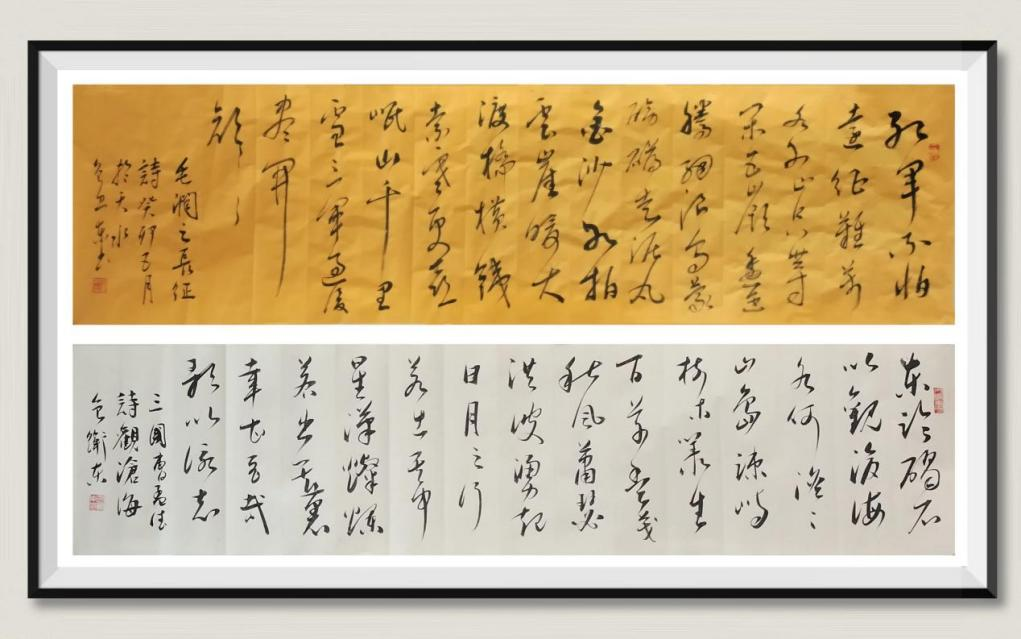 紅軍不怕
遠征難萬
水千山只等
閒五嶺逶迤
騰細浪烏蒙
磅礴走泥丸
金沙水拍
雲崖暖大
渡橋橫鐵
索寒更喜
岷山千里
雪三軍過後
盡開
顏
毛潤之長征
詩癸卯五月
於大水
包卫東书
東臨碣石
以觀滄海
水何澹々
山島竦峙
樹木叢生
百草豐茂
秋風蕭瑟
洪波湧起
日月之行
若出其中
星漢燦爛
若出其裏
幸甚至哉
歌以詠志
三國曹孟德
詩觀滄海
包衛东